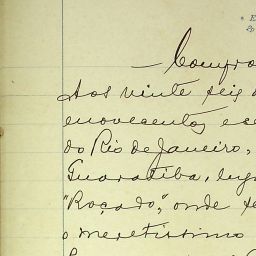 — Compro
Aos vinte seis d
enovecentos e ce
do Rio de Janeiro,
Guaratiba, lug
"Roçado", onde fe
o meretissimo